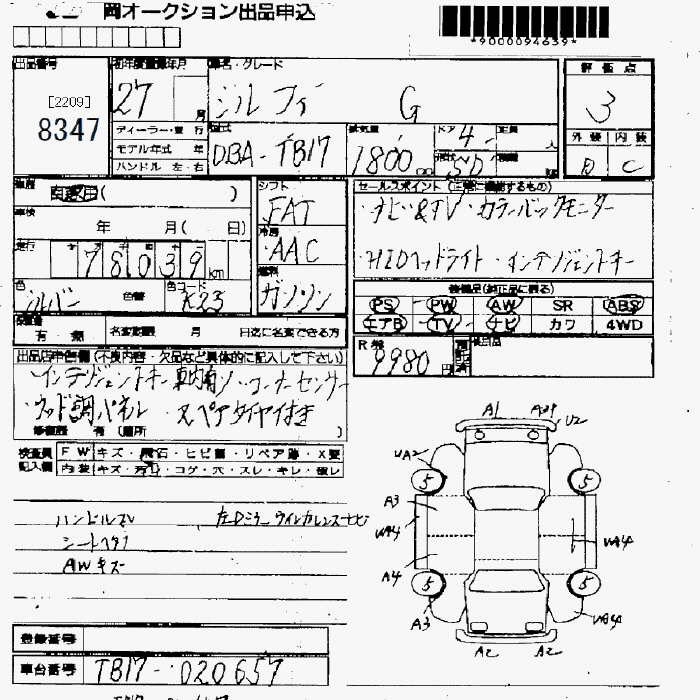 岡オークション出品申込
*9000094639*
出品番号 初年度登録年月 車名・グレード 評価点
[2209]
8347 27 月 シルフィ G 3
ディーラー・並行 型式 排気量 ドア 定員 人 外装 内装
モデル年式 年 DBA-TB17 1800cc 4 SD D C
ハンドル 左・右
車歴 自家用( ) シフト セールスポイント(正常に機能するもの)
FAT ・ナビ&TV・カラーバックモニター
車検 年 月( 日) 冷房
AAC ・HIDヘッドライト・インテリジェントキー
走行 78039km
燃料 装備品(純正品に限る)
色 シルバー 色替 色コード K23 ガソリン PS PW AW SR ABS
エアB TV ナビ カワ 4WD
有・無 名変期限 月 日迄に名変できる方 R券 9980円
出品店申告欄(不良内容・欠品など具体的に記入して下さい)
・インテリジェントキー ・コーナーセンサー
・ウッド調パネル ・スペアタイヤ付き
修復歴 有(箇所 )
検査員 FWキズ・飛石・ヒビ割・リペア跡・X要
記入欄 内装キズ・汚れ・コゲ・穴・スレ・キレ・破レ
ハンドルスレ 左Dミラーウインカーレンズヒビ
シートヘタリ
AWキズ
A1 U2
UA2 5 5
A3
UA4 UA4
A4
5 5
A3 UA4
A2 A2
登録番号
車台番号 TB17-020657